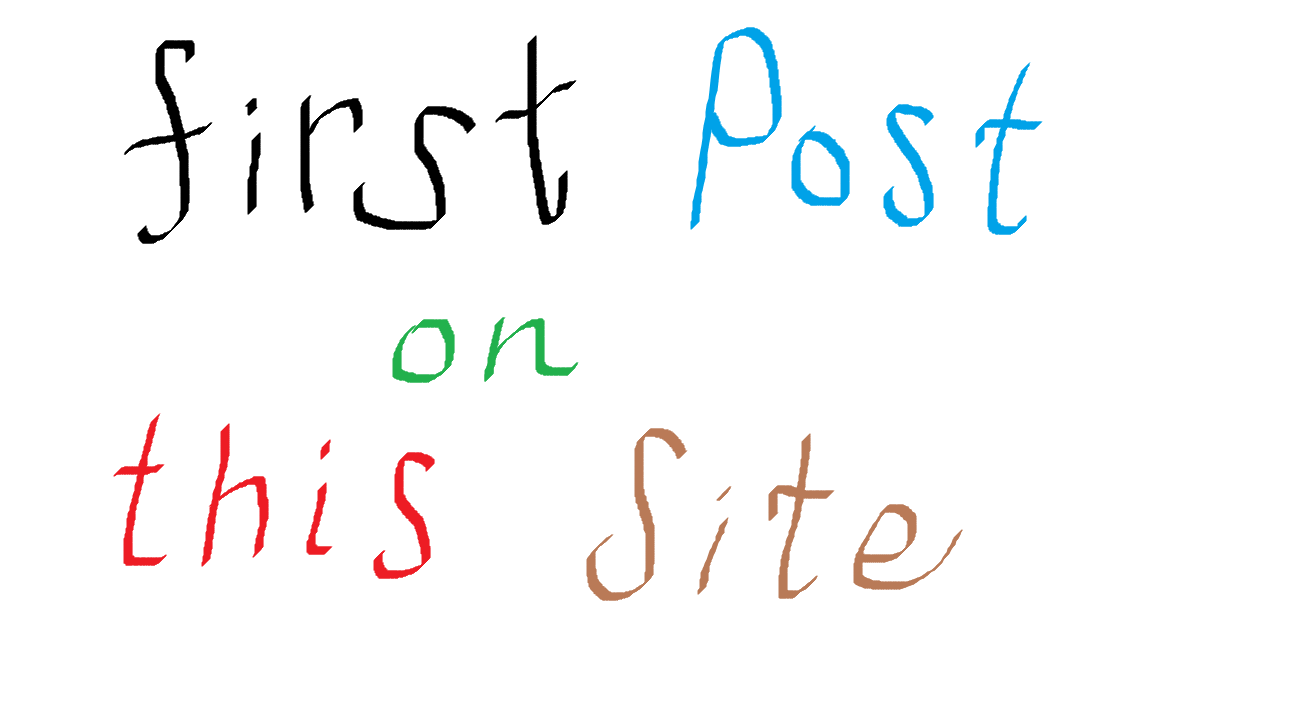 first Post
on
this Site